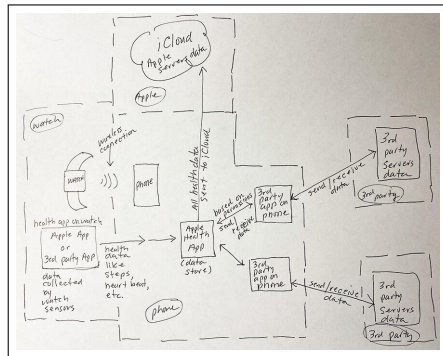 iCloud
Apple
servers data
Apple
watch
wireless
connection
watch
phone
All health data
sent to iCloud
health app on watch
Apple App
or
3rd party App
data
collected
by
watch
sensors
health
data
like
steps,
heart beat,
etc.
Apple
Health
App
(data
store)
based on
permissions
send/
receive
data
3rd
party
app on
phone
3rd
party
app on
phone
phone
send/receive
data
3rd
party
servers
data
3rd party
send/receive
data
3rd
party
servers
data
3rd party